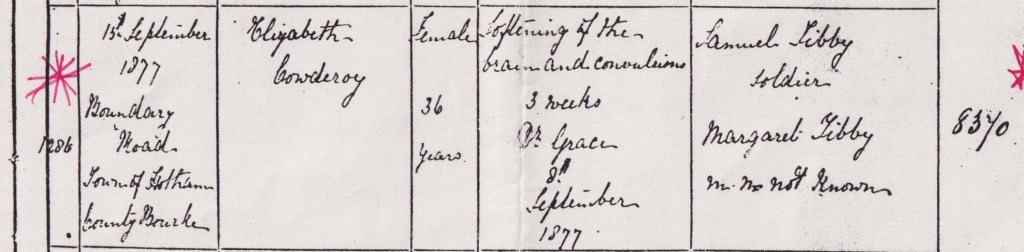 1286
13th September
1877
Boundary
Road
Town of Hotham
County Bourke
Elizabeth
Cowderoy
Female
36
Years
Softening of the
brain and convulsions
3 weeks
Dr Grace
8th
September
1877
Samuel Tibby
Soldier
Margaret Tibby
m. n. not Known
8370